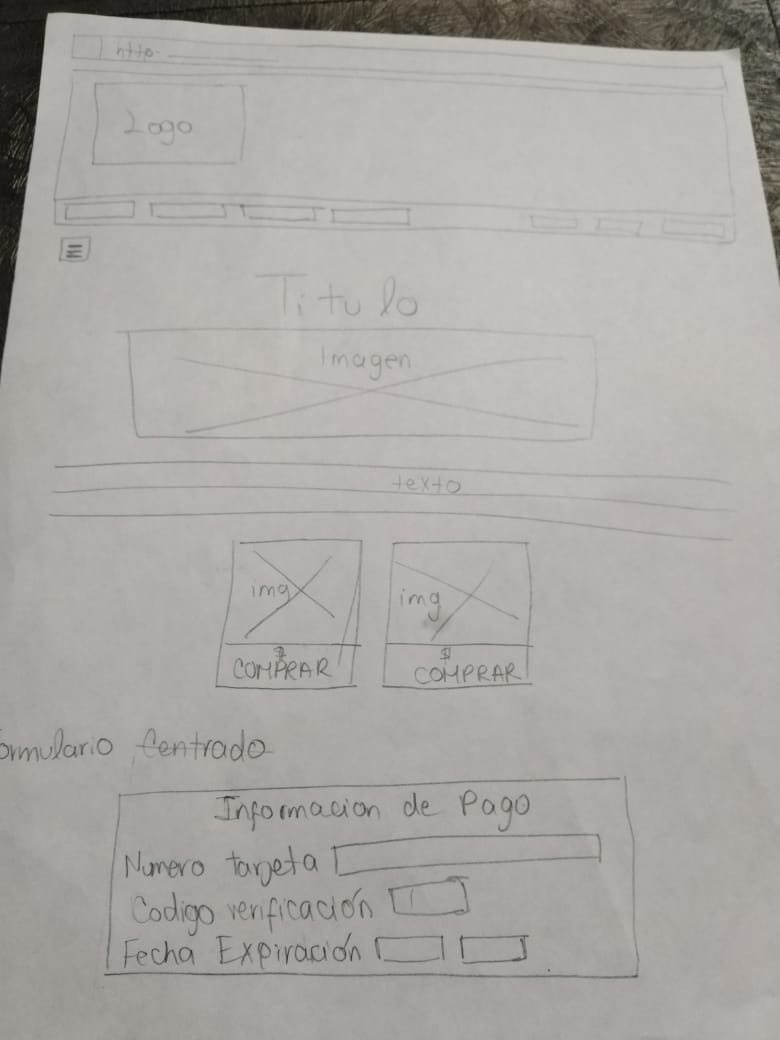 http.
Logo
Titulo
Imagen
texto
img
img
$
$
COMPRAR
COMPRAR
ormulario Centrado
Informacion de Pago
Numero tarjeta
Codigo verificación
Fecha Expiración